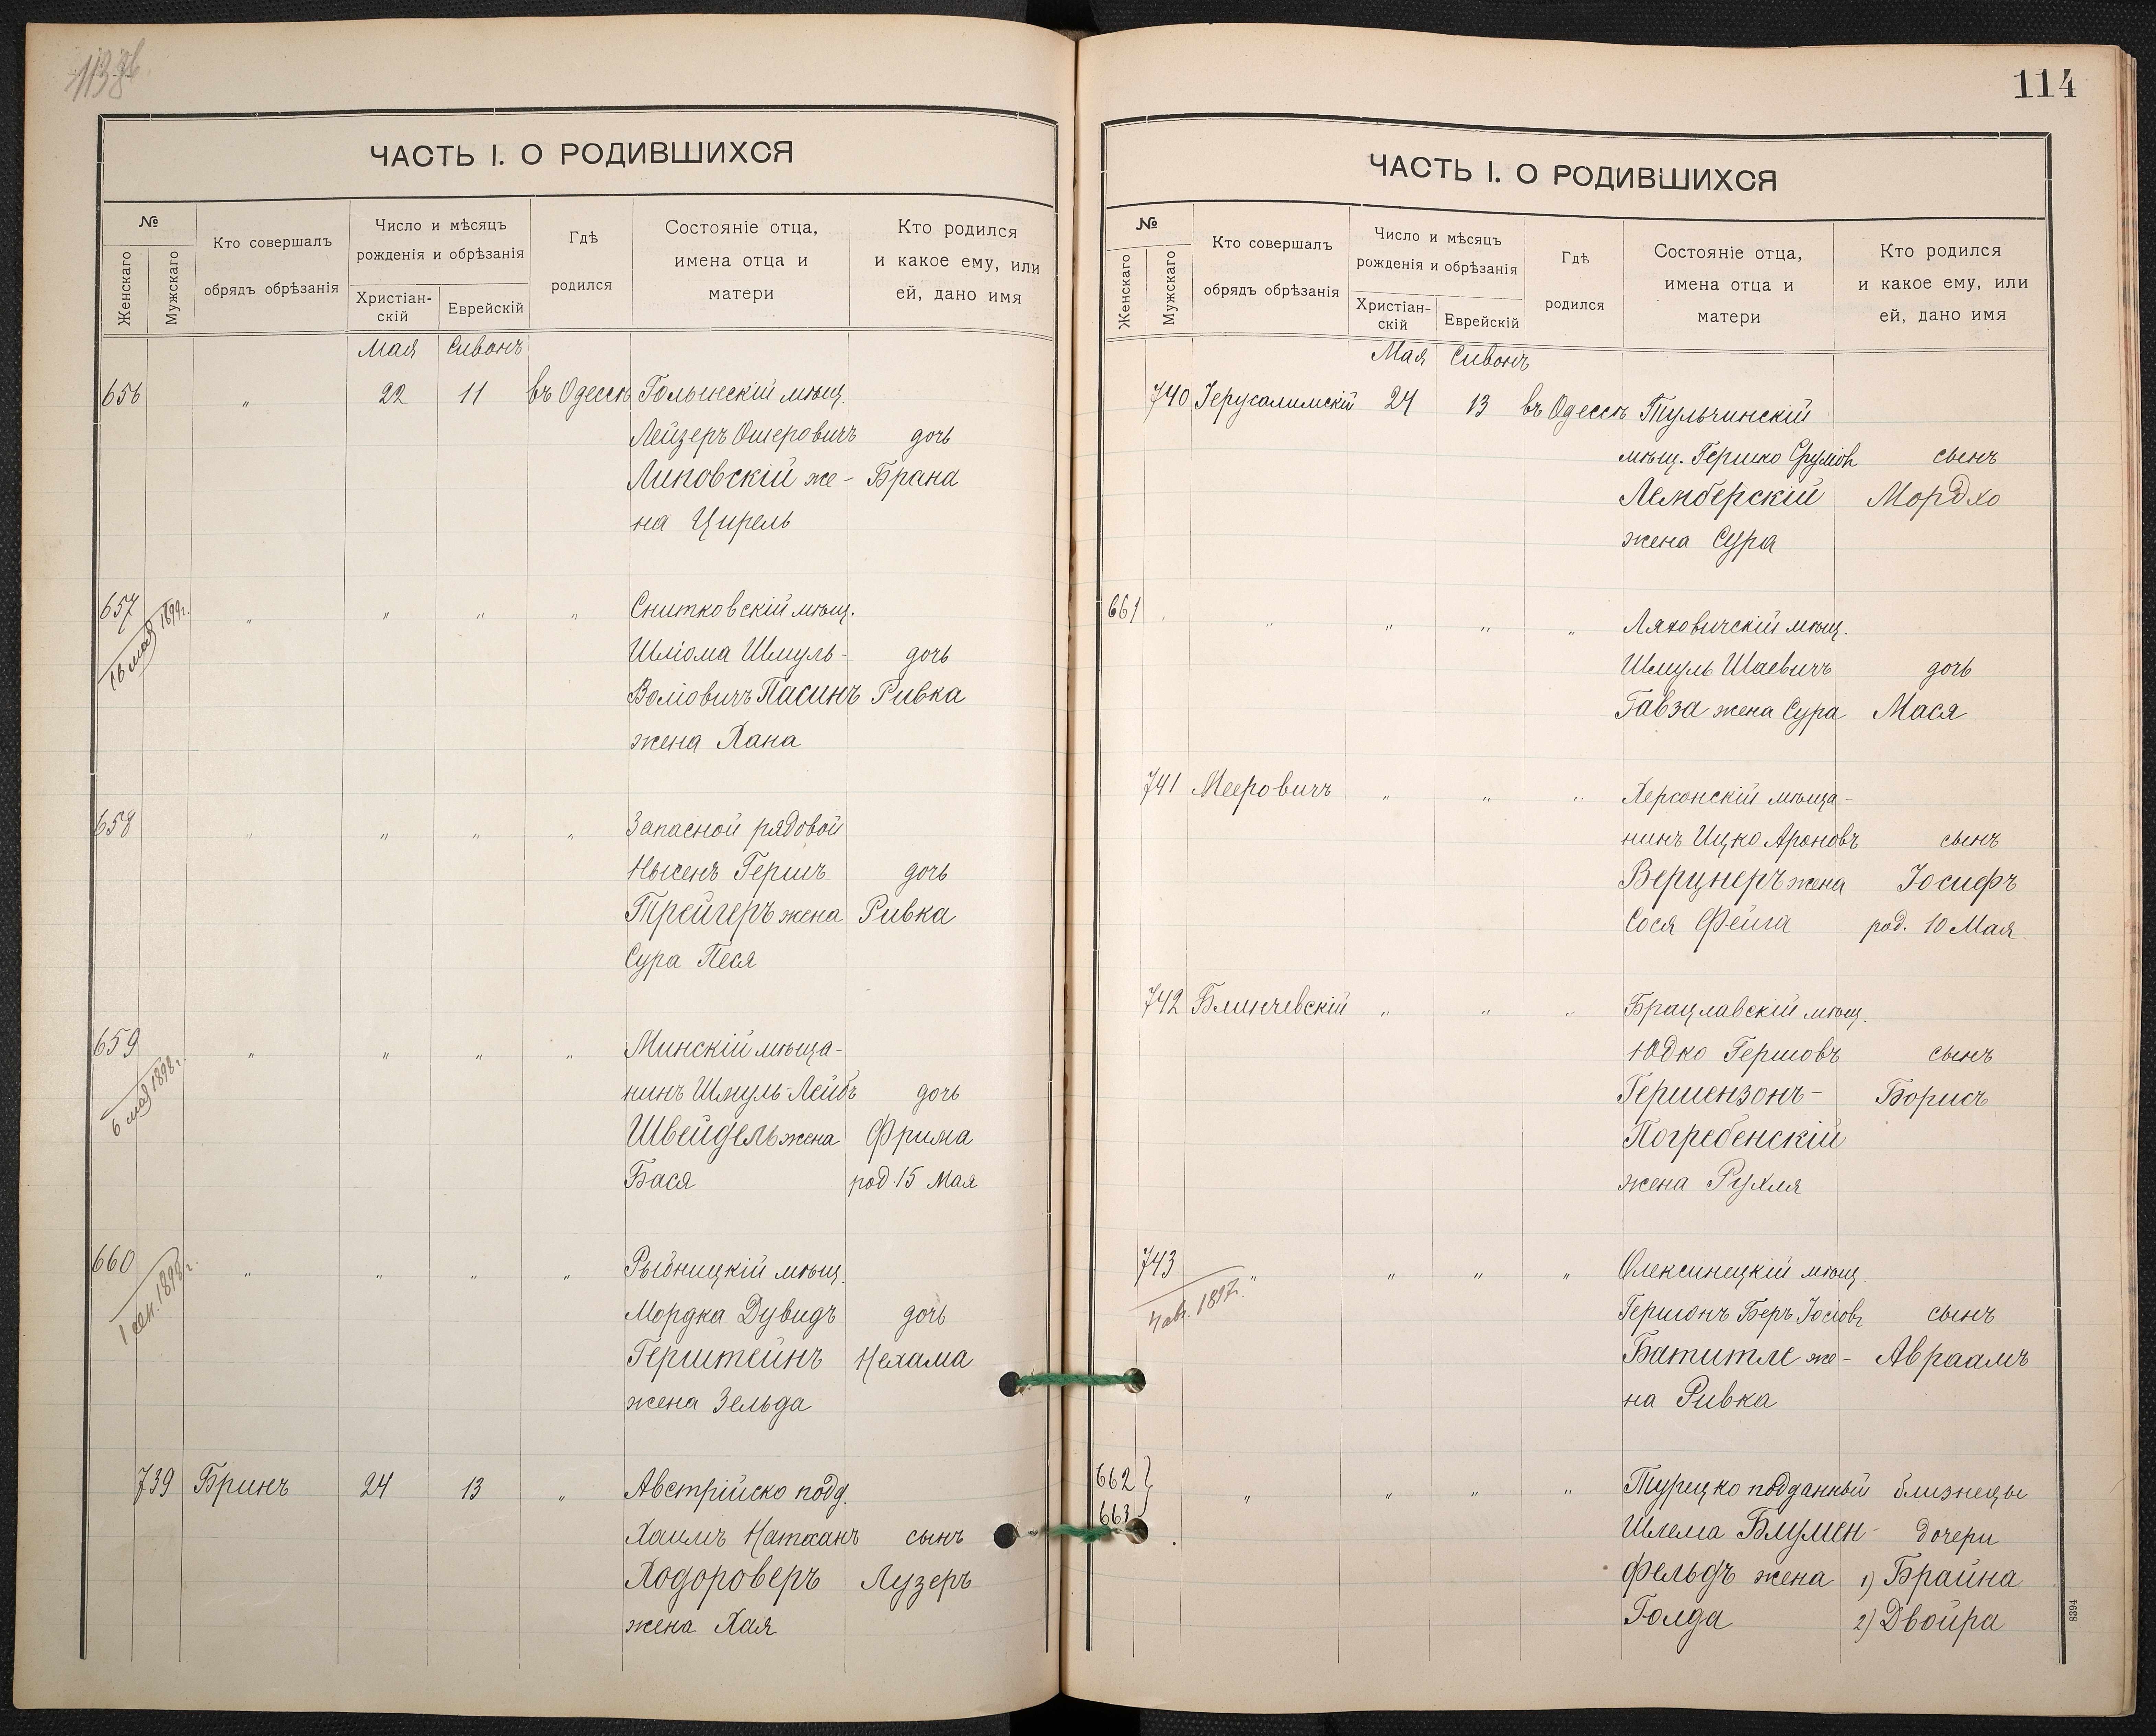 113об.
ЧАСТЬ I. О РОДИВШИХСЯ
№
Женскаго
Мужскаго
Кто совершалъ
обрядъ обрѣзанія
Число и мѣсяцъ
рожденія и обрѣзанія
Христіан-
скій
Еврейскій
Гдѣ
родился
Состояніе отца,
имена отца и
матери
Кто родился
и какое ему, или
ей, дано имя
Мая Сивонъ
656 " 22 11 въ Одессѣ Гольинскій мѣщ.
Лейзеръ Ошеровичъ дочь
Липовскій же- Брана
на Цирель
657 " " " " Снитковскій мѣщ.
16 мая 1899 г.
Шліома Шмуль- дочь
Воліовичъ Пасинъ Ривка
жена Хана
658 " " " " Запасной рядовой
Нысенъ Гершъ дочь
Трейгеръ жена Ривка
Сура Песя
659 " " " " Минскій мѣща-
6 мая 1898 г.
нинъ Шмуль-Лейбъ дочь
Швейдель жена Фрима
Бася род. 15 Мая
660 " " " " Рыбницкій мѣщ.
1 сен. 1898 г.
Мордка Дувидъ дочь
Герштейнъ Нехама
жена Зельда
739 Бринъ 24 13 " Австрійско подд.
Хаимъ Наттанъ сынъ
Ходороверъ Лузеръ
жена Хая
114
ЧАСТЬ I. О РОДИВШИХСЯ
№
Женскаго
Мужскаго
Кто совершалъ
обрядъ обрѣзанія
Число и мѣсяцъ
рожденія и обрѣзанія
Христіан-
скій
Еврейскій
Гдѣ
родился
Состояніе отца,
имена отца и
матери
Кто родился
и какое ему, или
ей, дано имя
Мая Сивонъ
740 Іерусалимскій 24 13 въ Одессѣ Тульчинскій
мѣщ. Гершко Срулiов сынъ
Лемберскій Мордхо
жена Сура
661 " " " " Ляховичскій мѣщ.
Шмуль Шаевичъ дочь
Гавза жена Сура Мася
741 Мееровичъ " " " Херсонскій мѣща-
нинъ Ицко Ароновъ сынъ
Верцнеръ жена Іосифъ
Сося Фейга род. 10 Мая
742 Блинчевскій " " " Брацлавскій мѣщ.
Юдко Гершовъ сынъ
Гершензонъ- Борисъ
Погребенскій
жена Рухля
743 " " " " Олексинецкій мѣщ.
4 авг. 1897 г.
Гершонъ Беръ Іосіовъ сынъ
Батитле же- Авраамъ
на Ривка
662
663 " " " " Турецко подданный близнецы
Шлема Блумен- дочери
фельдъ жена 1) Брайна
Голда 2) Двойра
8394